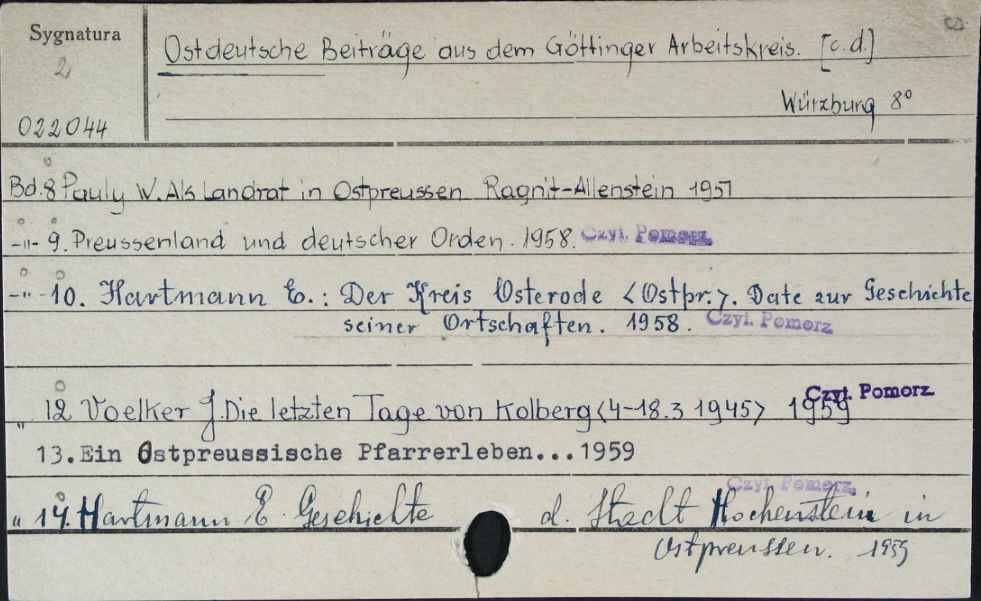 Sygnatura
2
022044
Ostdeutsche Beiträge aus dem Göttinger Arbeitskreis. [c.d.]
Würzburg 8°
Bd.8 Pauly W. Als Landrat in Ostpreussen Ragnit-Allenstein 1957
-"- 9. Preussenland und deutscher Orden. 1958. Czyt. Pomorz.
-"- 10. Hartmann E.: Der Kreis Osterode <Ostpr.>. Date zur Geschichte
seiner Ortschaften. 1958. Czyt. Pomorz
" 12 Voelker J. Die letzten Tage von Kolberg <4-18.3 1945> 1959 Czyt. Pomorz.
13. Ein Ostpreussische Pfarrerleben... 1959
" 14. Hartmann E. Geschichte d. Stadt Hochenstein in Czyt. Pomorz.
Ostpreussen. 1959